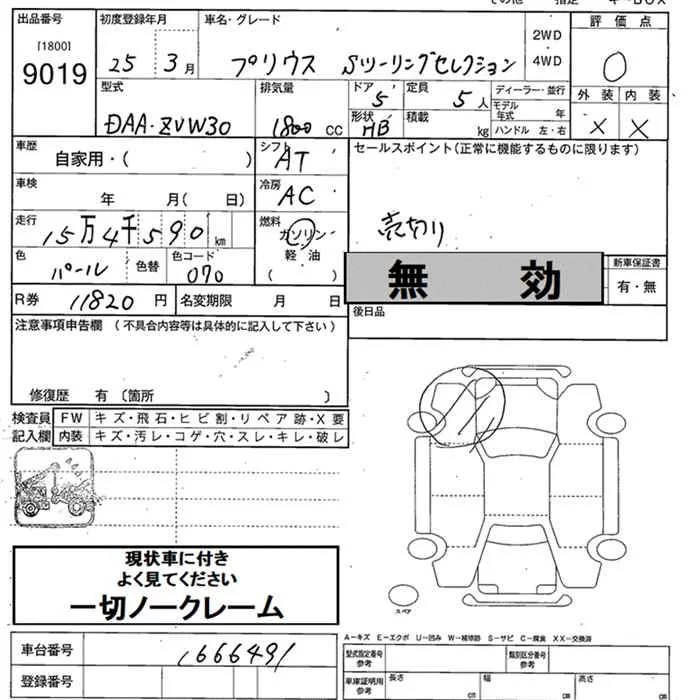 出品番号 初度登録年月 車名・グレード 評価点
[1800]
9019 25 3月 プリウス Sツーリングセレクション 2WD 4WD 0
型式 排気量 ドア 5 定員 5人 ディーラー・並行 外装 内装
DAA-ZVW30 1800 CC 形状 HB 積載 kg モデル年式 年 ハンドル 左・右 X X
車歴 自家用・( ) シフト AT セールスポイント(正常に機能するものに限ります)
車検 年 月( 日) 冷房 AC
走行 15万4千590km 燃料 ガソリン 売切り
色 パール 色替 色コード 070 軽油 ( ) 無効 新車保証書 有・無
R券 11820円 名変期限 月 日 後日品
注意事項申告欄 (不具合内容等は具体的に記入して下さい)
修復歴 有 〔箇所 〕
検査員 FW キズ・飛石・ヒビ割・リペア跡・X要
記入欄 内装 キズ・汚レ・コゲ・穴・スレ・キレ・破レ
現状車に付き
よく見てください
一切ノークレーム
スペア
A-キズ E-エクボ U-凹み W-補修跡 S-サビ C-腐食 XX-交換済
車台番号 1666491 型式指定番号 参考 類別区分番号 参考
登録番号 車庫証明用 参考 長さ cm 幅 cm 高さ cm